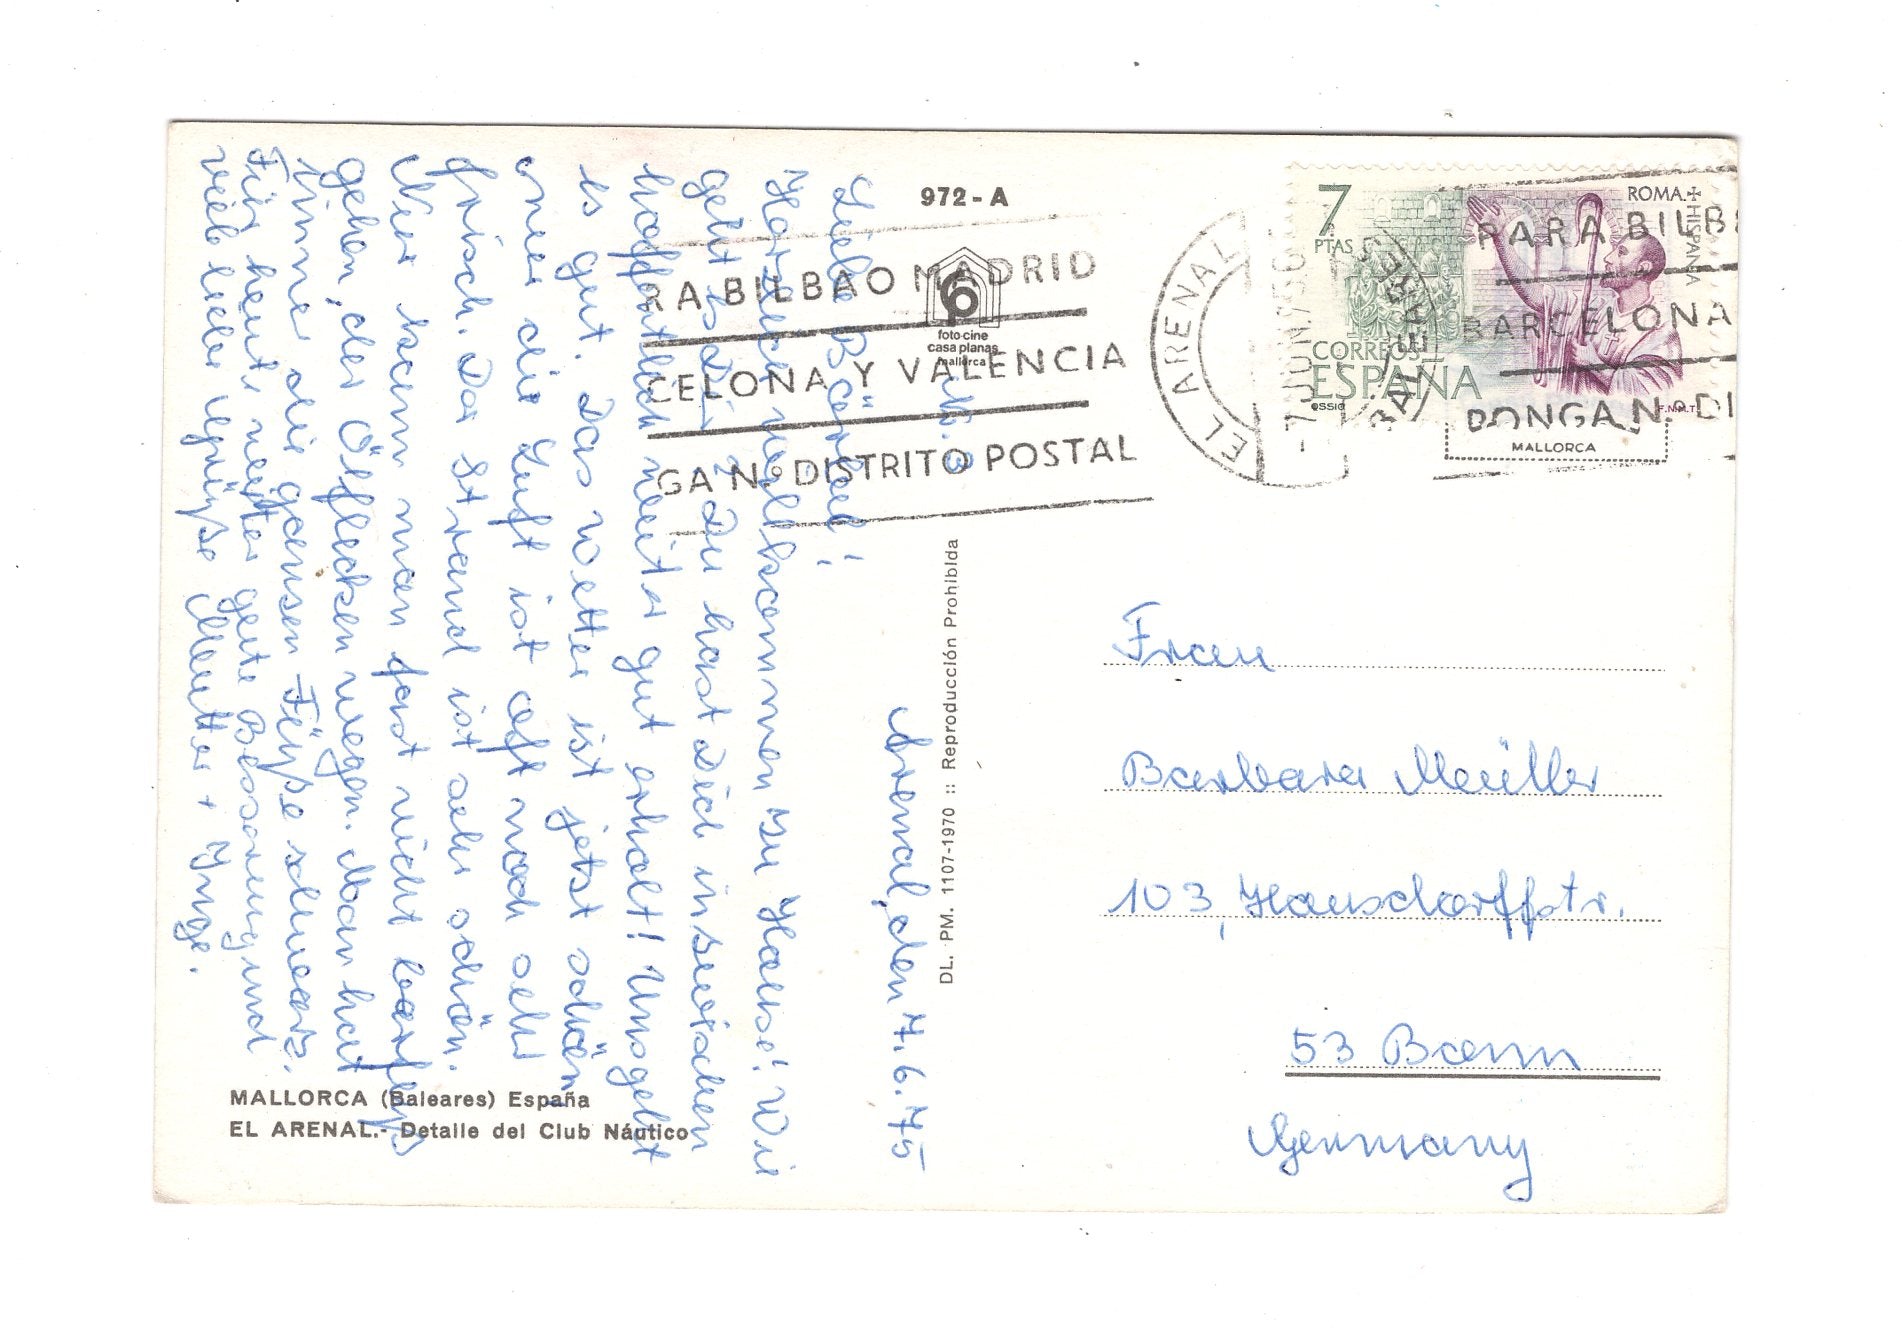 972-A
RA BILBAO MADRID
CELONA Y VALENCIA
GA Nº DISTRITO POSTAL
foto-cine
casa planas
mallorca
EL ARENAL
BALEARES
-7 JUN 75
7
PTAS
ROMA + HISPANIA
CORREOS
ESPAÑA
F.N.M.T.
PARA BILB
BARCELONA
PONGA Nº DI
MALLORCA
Arenal, den 7.6.75
Liebe Bärbel!
Herzlich willkommen zu Hause! Wie
geht es Dir? Du hast Dich inzwischen
hoffentlich weiter gut erholt! Uns geht
es gut. Das Wetter ist jetzt schön
nur die Luft ist oft noch sehr
frisch. Der Strand ist sehr schön.
Nur kann man fast nicht barfuß
gehen, der Ölflecken wegen. Man hat
immer die ganzen Füße schwarz.
Für heute weiter gute Besserung und
viele liebe Grüße Mutter + Inge.
DL. PM. 1107-1970 :: Reproducción Prohibida
Frau
Barbara Müller
103, Hausdorffstr.
53 Bonn
Germany
MALLORCA (Baleares) España
EL ARENAL.- Detalle del Club Náutico